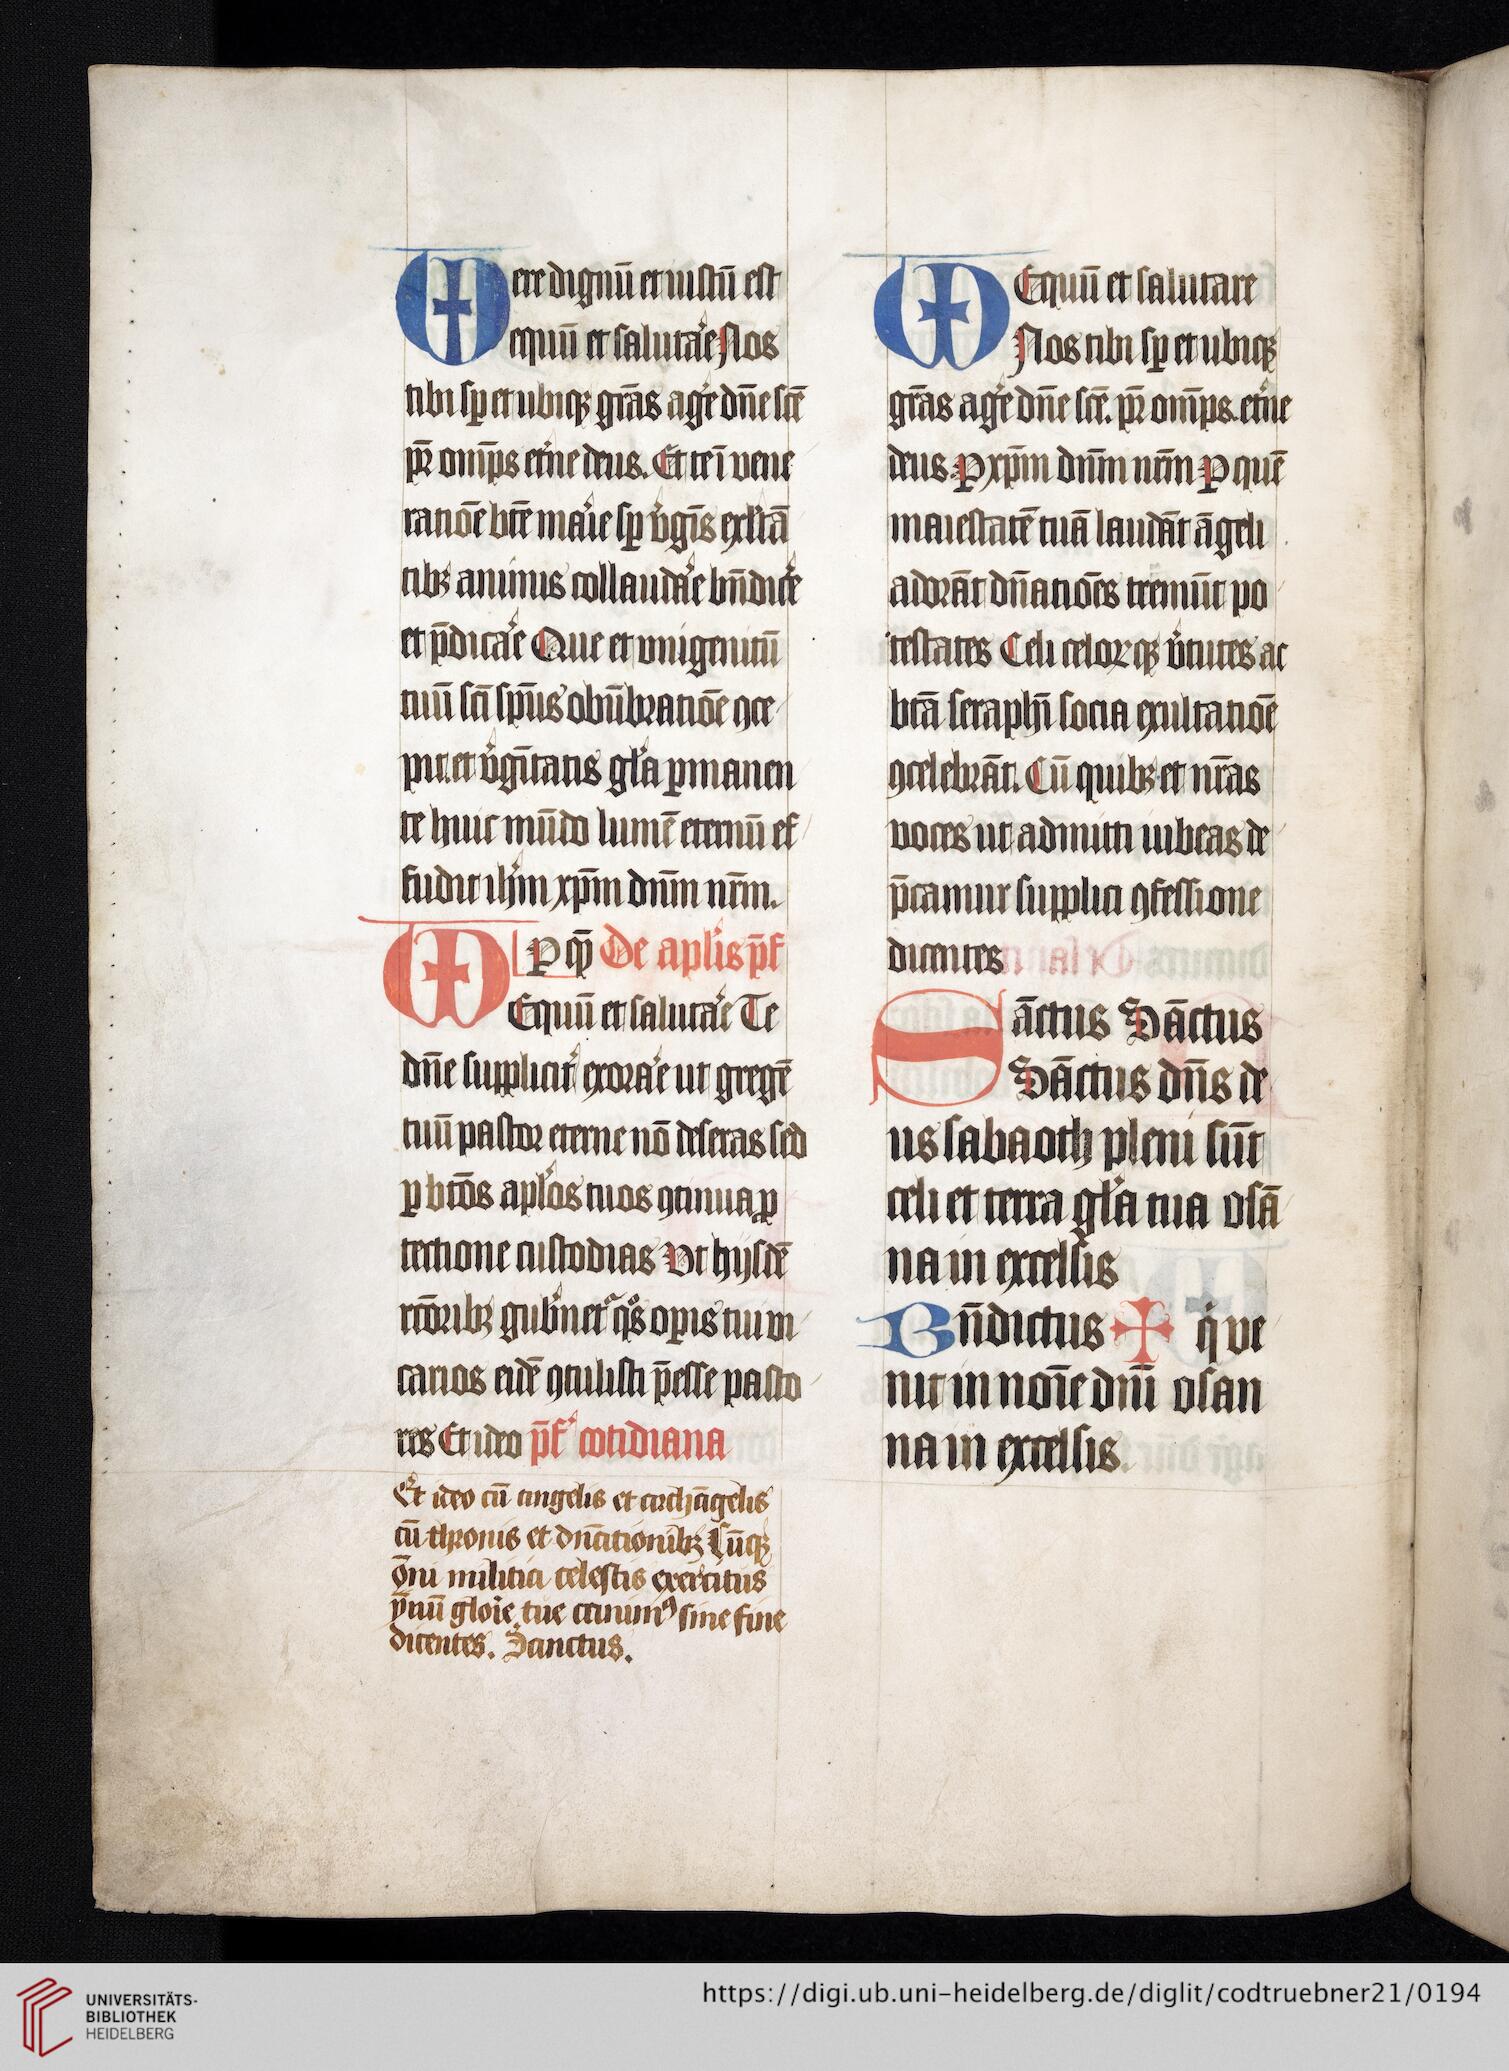 Vere dignū et iustū est
equū et saluta͛e Nos
tibi sp̱ et ubiqꝫ gr̄as ag͛e dn̄e scē
pr̄ om̄ps et͛ne deus. Et te ī vene
ratiōe btē ma͛ie sp̱ v͛gīs exl͛tā
tibꝫ animis collauda͛e bn̄dic͛e
et p̄dica͛e Que et unigenitū
tuū sc̄i sp̄us obūbratiōe ꝯce
pit. et v͛gītatis gl͛a ꝑmanen
te huic mūdo lumē eternū ef
fudit ih͛m xp̄m dn̄m nr̄m.
V P qꝫ De apl͛is p̄f
Equū et saluta͛e Te
dn̄e supplicit͛ exora͛e ut gregē
tuū pastor eterne nō deseras sed
ꝑ btōs apl͛os tuos ꝯtinua ꝓ
tectione custodias Vt hijsdē
rcōribꝫ gub͛net͛ qs̄ oꝑis tui vi
carios eidē ꝯtulisti p̄esse pasto
res Et ideo p̄f͛ cotidiana
Et ideo cū angelis et archāgelis
cū thronis et dn̄ationibꝫ Cūqꝫ
ōni militia celestis exercitus
ȳnū glo͛ie tue canimꝰ sine fine
dicentes. Sanctus.
V Equū et salutare
Nos tibi sp̱ et ubiqꝫ
gr̄as ag͛e dn̄e scē. pr̄ om̄ps. et͛ne
deus. P xp̄m dn̄m nr̄m P quē
maiestatē tuā laudāt āgeli
adorāt dn̄atiōes tremūt po
testates Celi celorꝫqꝫ v͛tutes ac
btā seraphī socia exultatiōe
ꝯcelebrāt. Cū quibꝫ et nr̄as
voces ut admitti iubeas de
p̄camur supplici ꝯfessione
dicentes
Sāctus Sāctus
Sāctus dn̄s de
us sabaoth pleni sūt
celi et terra gl͛a tua osā
na in excelsis
Bn̄dictus ✠ q̇ ve
nit in noīe dn̄i osan
na in excelsis.
UNIVERSITÄTS-
BIBLIOTHEK
HEIDELBERG
https://digi.ub.uni-heidelberg.de/diglit/codtruebner21/0194